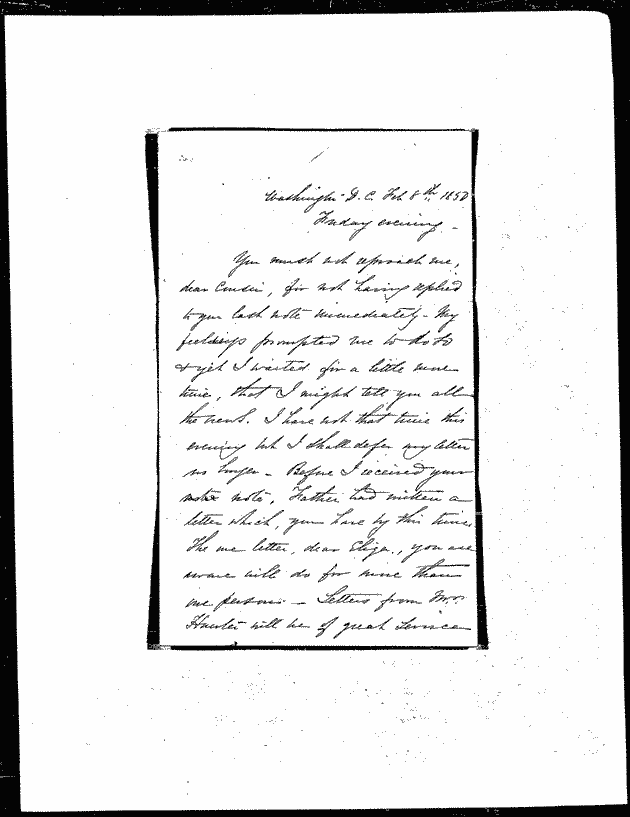 Washington D.C. Feb 8th, 1850
Friday evening -
You must not reproach me,
dear Cousin, for not having replied
to your last note immediately - My
feelings prompted me to do so
& yet I waited for a little more
time, that I might tell you all
the news. I have not that time this
evening but I shall defer my letter
no longer - Before I received your
note, Father had written a
letter which, you have by this time.
The one letter, dear Eliza, you are
aware will do for more than
one person - Letters from Mrs.
Hunter will be of great service